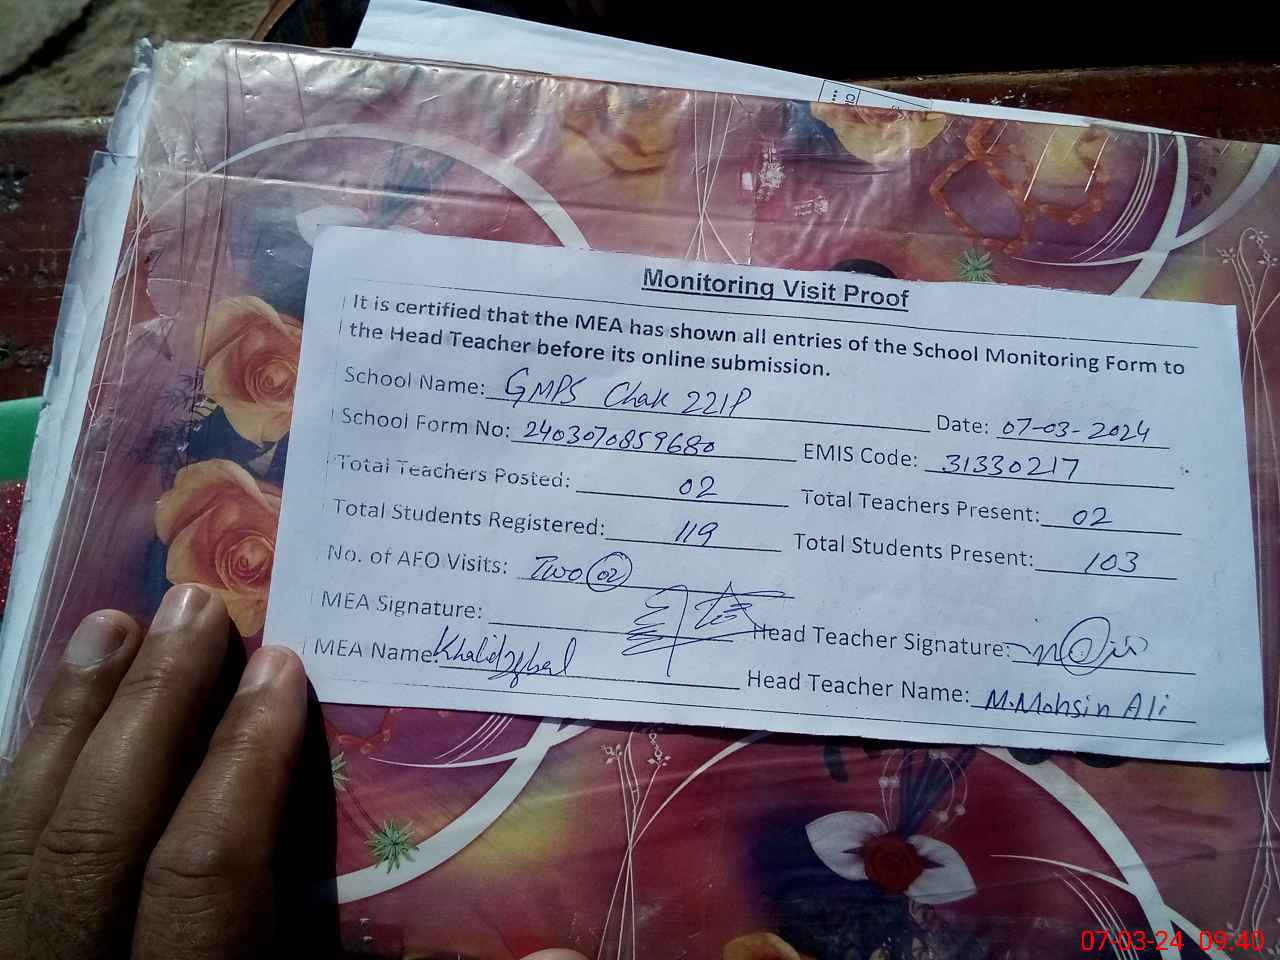 Monitoring Visit Proof
It is certified that the MEA has shown all entries of the School Monitoring Form to
the Head Teacher before its online submission.
School Name: GMPS Chak 221P Date: 07-03-2024
School Form No: 2403070859680 EMIS Code: 31330217
Total Teachers Posted: 02 Total Teachers Present: 02
Total Students Registered: 119 Total Students Present: 103
No. of AFO Visits: Two 02
MEA Signature: Head Teacher Signature:
MEA Name: Khalid Iqbal Head Teacher Name: M.Mohsin Ali
07-03-24 09:40